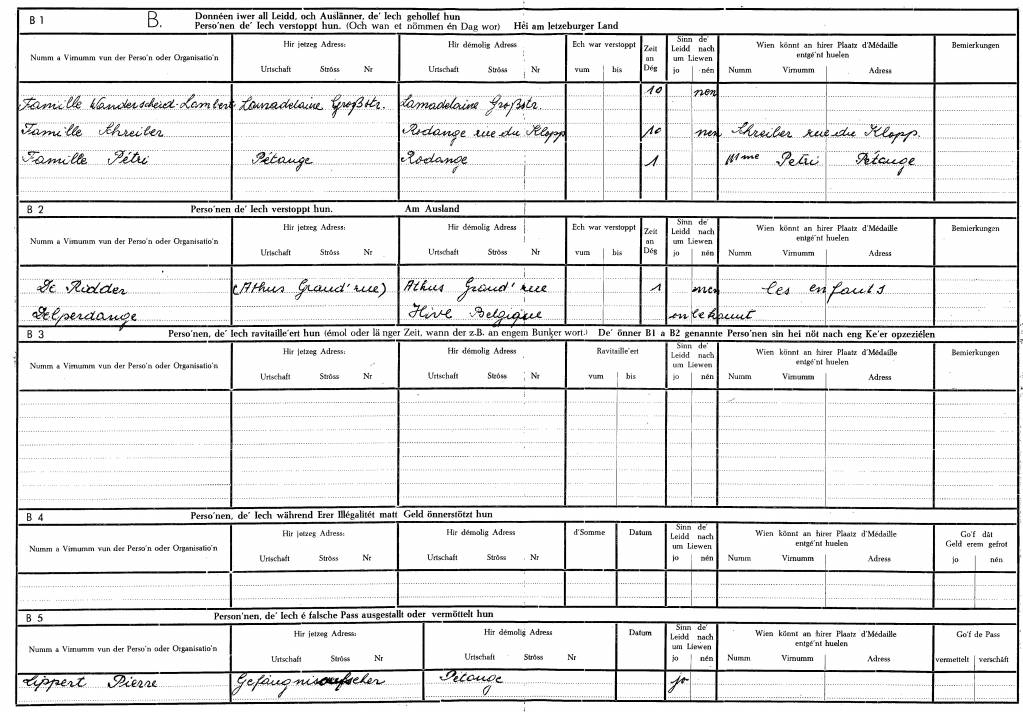 B 1 B. Donnéen iwer all Leidd, och Auslänner, de' Iech gehollef hun
Perso'nen de' Iech verstoppt hun. (Och wan et nömmen én Dag wor) Hèi am letzeburger Land
Numm a Virnumm vun der Perso'n oder Organisatio'n Hir jetzeg Adress: Hir démolig Adress Ech war verstoppt Zeit an Dég Sinn de' Leidd nach um Liewen Wien könnt an hirer Plaatz d'Médaille entgé'nt huelen Bemierkungen
Urtschaft Ströss Nr Urtschaft Ströss Nr vum bis jo nén Numm Virnumm Adress
Famille Wanderscheid-Lambert Lamadelaine Großstr. Lamadelaine Großstr. 10 nen
Famille Schreiber Rodange rue du Klopp 10 nen Schreiber rue du Klopp.
Famille Pétri Pétange Rodange 1 Mme Petri Pétange
B 2 Perso'nen de' Iech verstoppt hun. Am Ausland
Numm a Virnumm vun der Perso'n oder Organisatio'n Hir jetzeg Adress: Hir démolig Adress Ech war verstoppt Zeit an Dég Sinn de' Leidd nach um Liewen Wien könnt an hirer Plaatz d'Médaille entgé'nt huelen Bemierkungen
Urtschaft Ströss Nr Urtschaft Ströss Nr vum bis jo nén Numm Virnumm Adress
De Ridder (Athus Grand'rue) Athus Grand'rue 1 nen les enfants
Elperdange Hive Belgique onbekannt
B 3 Perso'nen, de' Iech ravitaille'ert hun (émol oder länger Zeit, wann der z.B. an engem Bunker wort.) De' önner B1 a B2 genannte Perso'nen sin hei nöt nach eng Ke'er opzeziélen
Numm a Virnumm vun der Perso'n oder Organisatio'n Hir jetzeg Adress: Hir démolig Adress Ravitaille'ert Sinn de' Leidd nach um Liewen Wien könnt an hirer Plaatz d'Médaille entgé'nt huelen Bemierkungen
Urtschaft Ströss Nr Urtschaft Ströss Nr vum bis jo nén Numm Virnumm Adress
B 4 Perso'nen, de' Iech während Erer Illégalitét matt Geld önnerstötzt hun
Numm a Virnumm vun der Perso'n oder Organisatio'n Hir jetzeg Adress: Hir démolig Adress d'Somme Datum Sinn de' Leidd nach um Liewen Wien könnt an hirer Plaatz d'Médaille entgé'nt huelen Go'f dât Geld erem gefrot
Urtschaft Ströss Nr Urtschaft Ströss Nr jo nén Numm Virnumm Adress jo nén
B 5 Person'nen, de' Iech é falsche Pass ausgestallt oder vermöttelt hun
Numm a Virnumm vun der Perso'n oder Organisatio'n Hir jetzeg Adress: Hir démolig Adress Datum Sinn de' Leidd nach um Liewen Wien könnt an hirer Plaatz d'Médaille entgé'nt huelen Go'f de Pass
Urtschaft Ströss Nr Urtschaft Ströss Nr jo nén Numm Virnumm Adress vermettelt verschâft
Lippert Pierre Gefängnisaufseher Pétange jo